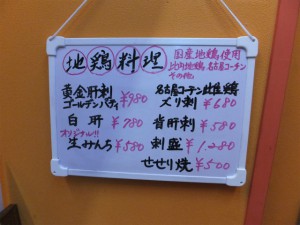 地鶏料理
国産地鶏使用
比内地鶏、名古屋コーチン
その他。
黄金肝刺
ゴールデンバディ ¥980
名古屋コーチン 此隹鶏
ズリ刺 ¥680
白肝 ¥780
背肝刺 ¥580
オリジナル!!
生みんち ¥580
刺盛 ¥1,280
せせり焼 ¥500